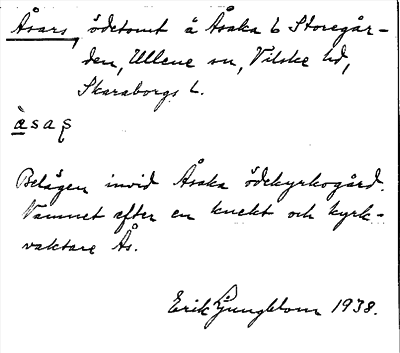 Åsars, ödetomt å Åsaka 6 Storegår-
den, Ullene sn, Vilske hd,
Skaraborgs l.
àsaʂ
Belägen invid Åsaka ödekyrkogård.
Namnet efter en knekt och kyrk-
vaktare Ås.
Erik Ljungblom 1938.